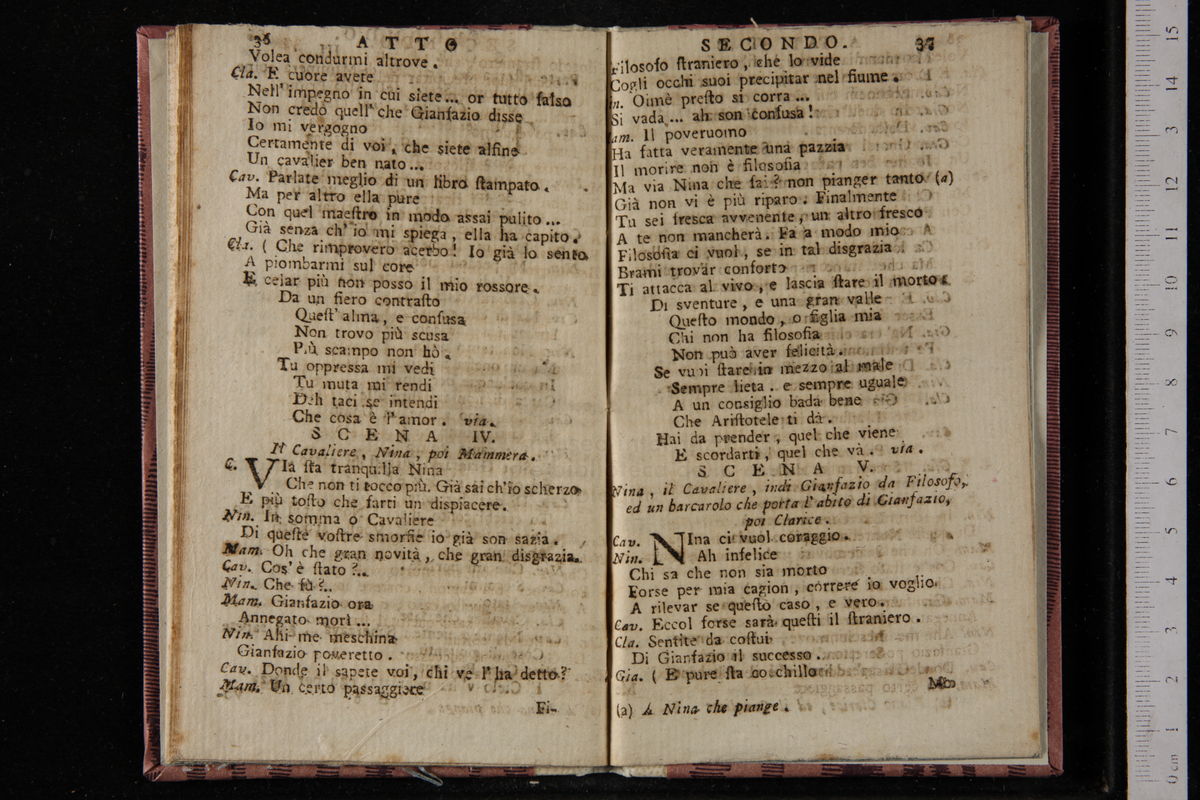 36 ATTO
Volea condurmi altrove.
Cla. E cuore avete
Nell' impegno in cui siete... or tutto falso
Non credo quell' che Gianfazio disse
Io mi vergogno
Certamente di voi, che siete alfine
Un cavalier ben nato...
Cav. Parlate meglio di un libro ſtampato.
Ma per altro ella pure
Con quel maeſtro in modo assai pulito...
Già senza ch' io mi spiega, ella ha capito.
Cla. ( Che rimprovero acerbo! Io già lo sento
A piombarmi sul core
E celar più non posso il mio rossore.
Da un fiero contraſto
Queſt' alma, e confusa
Non trovo più scusa
Più scampo non hò.
Tu oppressa mi vedi
Tu muta mi rendi
Deh taci se intendi
Che cosa è l' amor. via.
SCENA IV.
Il Cavaliere, Nina, poi Mammera.
C. VIa ſta tranquilla Nina
Che non ti tocco più. Già sai ch'io scherzo
E più toſto che farti un dispiacere.
Nin. In somma o Cavaliere
Di queſte voſtre smorfie io già son sazia.
Mam. Oh che gran novità, che gran disgrazia.
Cav. Cos' è ſtato?..
Nin. Che fù?..
Mam. Gianfazio ora
Annegato morì...
Nin. Ahi me meschina
Gianfazio poveretto.
Cav. Donde il sapete voi, chi ve l' ha detto?
Mam. Un certo passaggiere
Fi-
SECONDO. 37
Filosofo ſtraniero, che lo vide
Cogli occhi suoi precipitar nel fiume.
in. Oimè preſto si corra...
Si vada... ah son confusa!
am. Il poveruomo
Ha fatta veramente una pazzia
Il morire non è filosofia
Ma via Nina che fai? non pianger tanto (a)
Già non vi è più riparo. Finalmente
Tu sei fresca avvenente, un altro fresco
A te non mancherà. Fa a modo mio
Filosofia ci vuol, se in tal disgrazia
Brami trovar conforto
Ti attacca al vivo, e lascia ſtare il morto.
Di sventure, e una gran valle
Queſto mondo, o figlia mia
Chi non ha filosofia
Non può aver felicità.
Se vuoi ſtare in mezzo al male
Sempre lieta. e sempre uguale
A un consiglio bada bene
Che Ariſtotele ti dà.
Hai da prender, quel che viene
E scordarti, quel che và. via.
SCENA V.
Nina, il Cavaliere, indi Gianfazio da Filosofo,
ed un barcarolo che porta l' abito di Gianfazio,
poi Clarice.
Cav. NIna ci vuol coraggio.
Nin. Ah infelice
Chi sa che non sia morto
Forse per mia cagion, correre io voglio
A rilevar se queſto caso, e vero.
Cav. Eccol forse sarà queſti il ſtraniero.
Cla. Sentite da coſtui
Di Gianfazio il successo.
Gia. ( E pure ſta co chillo
(a) A Nina che piange.